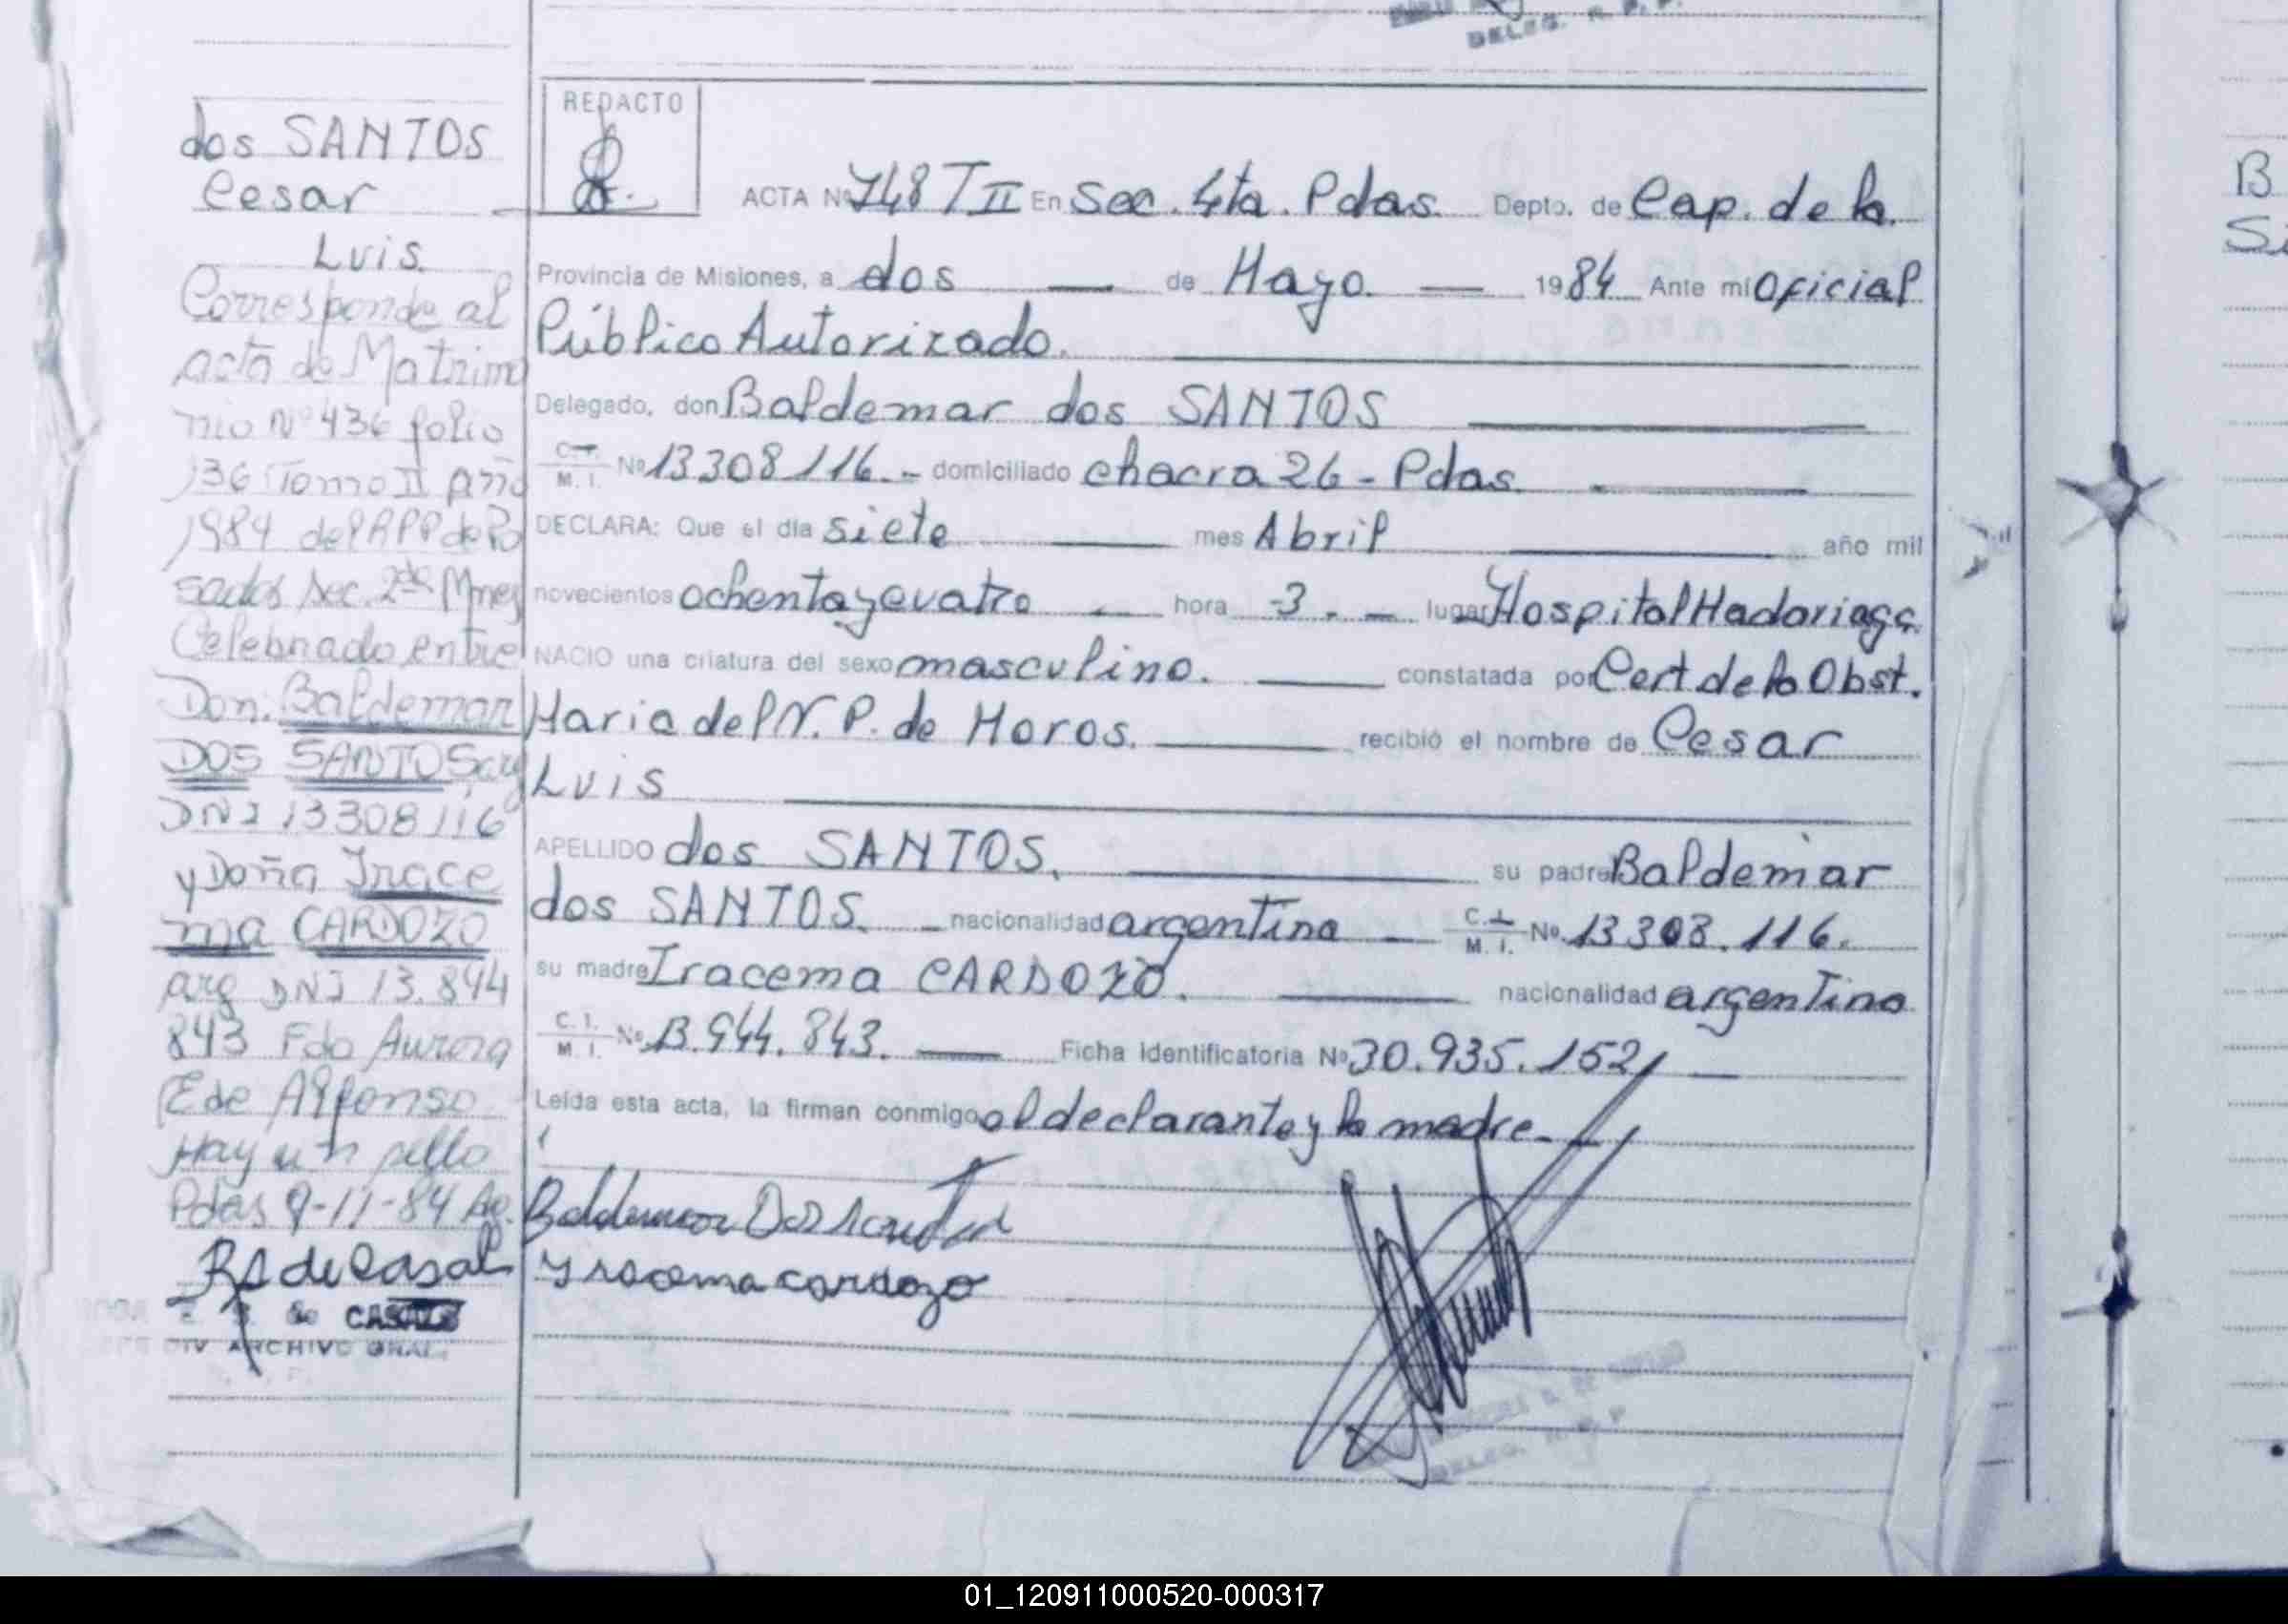 DELEG. R. P. P.
dos SANTOS
Cesar
Luis.
Corresponde al
acta de Matrimo
nio Nº 436 folio
136 Tomo II año
1984 del RPP de Po
sadas Sec. 2da Mnes
Celebrado entre
Don: Baldemar
DOS SANTOS arg
DNI 13308116
y Doña Irace
ma CARDOZO
arg DNI 13.844
843 Fdo Aurora
E de Alfonso
Hay un sello
Pdas 9-11-84
RS de Casal
de CASAL
DIV ARCHIVO GRAL.
REDACTO
ACTA Nº 748 T II En Sec. 4ta. Pdas. Depto. de Cap. de la
Provincia de Misiones, a dos de Mayo. 1984 Ante mi Oficial
Público Autorizado.
Delegado, don Baldemar dos SANTOS
C.I. M. I. Nº 13308116.- domiciliado chacra 26 - Pdas.
DECLARA: Que el día siete mes Abril año mil
novecientos ochenta y cuatro hora 3. lugar Hospital Madariaga
NACIO una criatura del sexo masculino. constatada por Cert de la Obst.
Maria del N. P. de Moros. recibió el nombre de Cesar
Luis
APELLIDO dos SANTOS. su padre Baldemar
dos SANTOS. nacionalidad argentina C.I. M. I. Nº 13308.116.
su madre Iracema CARDOZO. nacionalidad argentina
C. I. M. I. Nº 13.944.843. Ficha Identificatoria Nº 30.935.152
Leída esta acta, la firman conmigo el declarante y la madre.
Baldemar Dos Santos
Yracema cardozo
DELEG. R. P. P.
B
Si
01_120911000520-000317